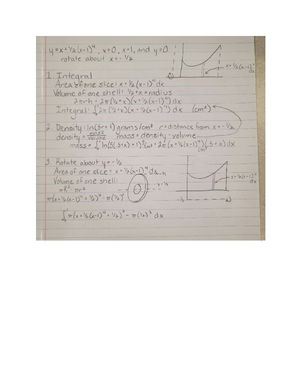 y=x+½(x-1)⁴, x=0, x=1, and y=0
rotate about x=-½
x+½(x-1)⁴
dx
1. Integral
Area of one slice: x+½(x-1)⁴ dx
Volume of one shell: ½+x=radius
2πrh = 2π(½+x)(x+½(x-1)⁴)dx
Integral: ∫2π(½+x)(x+½(x-1)⁴)dx (cm³)
2. Density = ln(5r+1) grams/cm³ r=distance from x=-½
density = mass/volume mass = density · volume
3. Rotate about y=-½
Area of one slice: x+½(x-1)⁴ dx
Volume of one shell:
πR²-πr²
π(x+½(x-1)⁴+½)²-π(½)²
∫π(x+½(x-1)⁴+½)²-π(½)² dx
x+½(x-1)⁴
dx